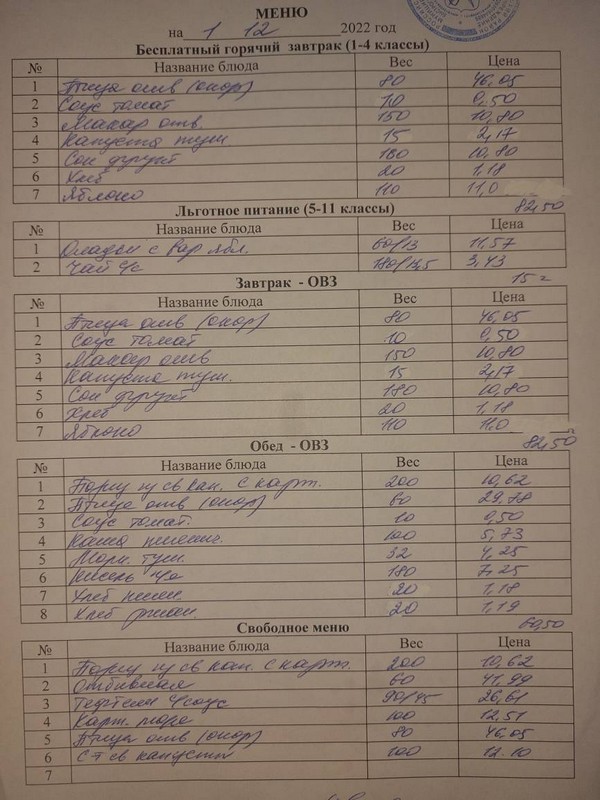 МЕНЮ
на 1 12 2022 год
Бесплатный горячий завтрак (1-4 классы)
№ Название блюда Вес Цена
1 Птица отв (окор) 80 46,05
2 Соус томат 10 0,50
3 Макар отв 150 10,80
4 Капуста туш 15 2,17
5 Сок фрукт 180 10,80
6 Хлеб 20 1,18
7 Яблоко 110 11,0
82,50
Льготное питание (5-11 классы)
№ Название блюда Вес Цена
1 Оладьи с вар ябл. 60/13 11,57
2 Чай 180/13,5 3,43
15
Завтрак - ОВЗ
№ Название блюда Вес Цена
1 Птица отв (окор) 80 46,05
2 Соус томат 10 0,50
3 Макар отв 150 10,80
4 Капуста туш. 15 2,17
5 Сок фрукт 180 10,80
6 Хлеб 20 1,18
7 Яблоко 110 11,0
82,50
Обед - ОВЗ
№ Название блюда Вес Цена
1 Борщ из св кап. с карт. 200 10,62
2 Птица отв (окор) 60 29,78
3 Соус томат. 10 0,50
4 Каша пшенич. 100 5,73
5 Морк. туш. 32 4,25
6 Кисель 180 7,25
7 Хлеб пшен. 20 1,18
8 Хлеб ржан. 20 1,19
60,50
Свободное меню
№ Название блюда Вес Цена
1 Борщ из св кап. с карт. 200 10,62
2 Отбивная 60 41,99
3 Тефтели с соус 90/45 26,61
4 Карт. пюре 100 12,51
5 Птица отв (окор) 80 46,05
6 С-т св капусты 100 12.10
7